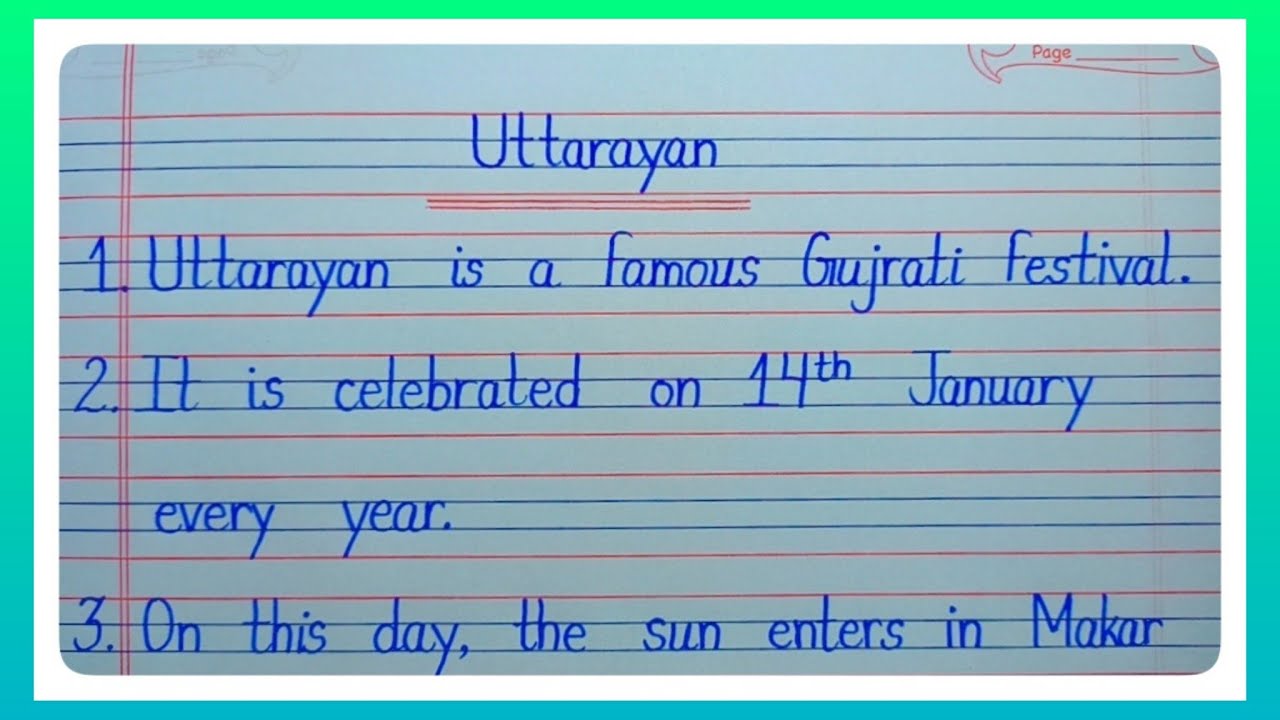 Page
Uttarayan
1. Uttarayan is a famous Gujrati festival.
2. It is celebrated on 14th January
every year.
3. On this day, the sun enters in Makar